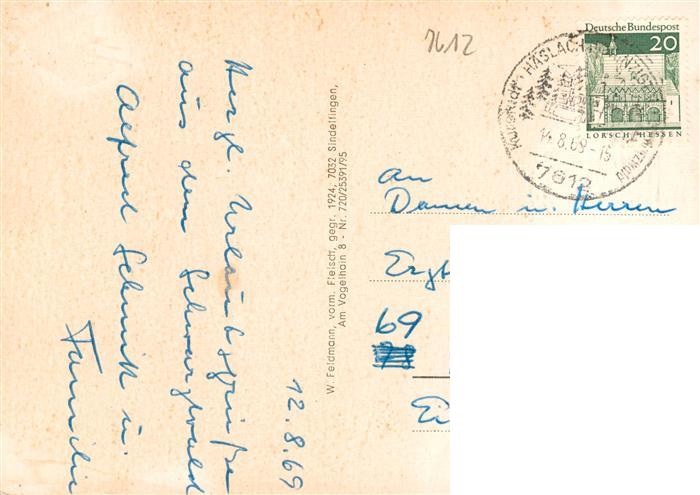 12.8.69
Herzl. Urlaubsgrüße
aus dem Schwarzwald
Alfred Schmitt u.
Familie
W. Feldmann, vorm. Fleisch, gegr. 1924, 7032 Sindelfingen,
Am Vogelhain 8 - Nr. 720/25391/95
7612
Deutsche Bundespost
20
LORSCH/HESSEN
HASLACH
14.8.69-15
7612
An
Damen u. Herren
Erzb
69
Ei